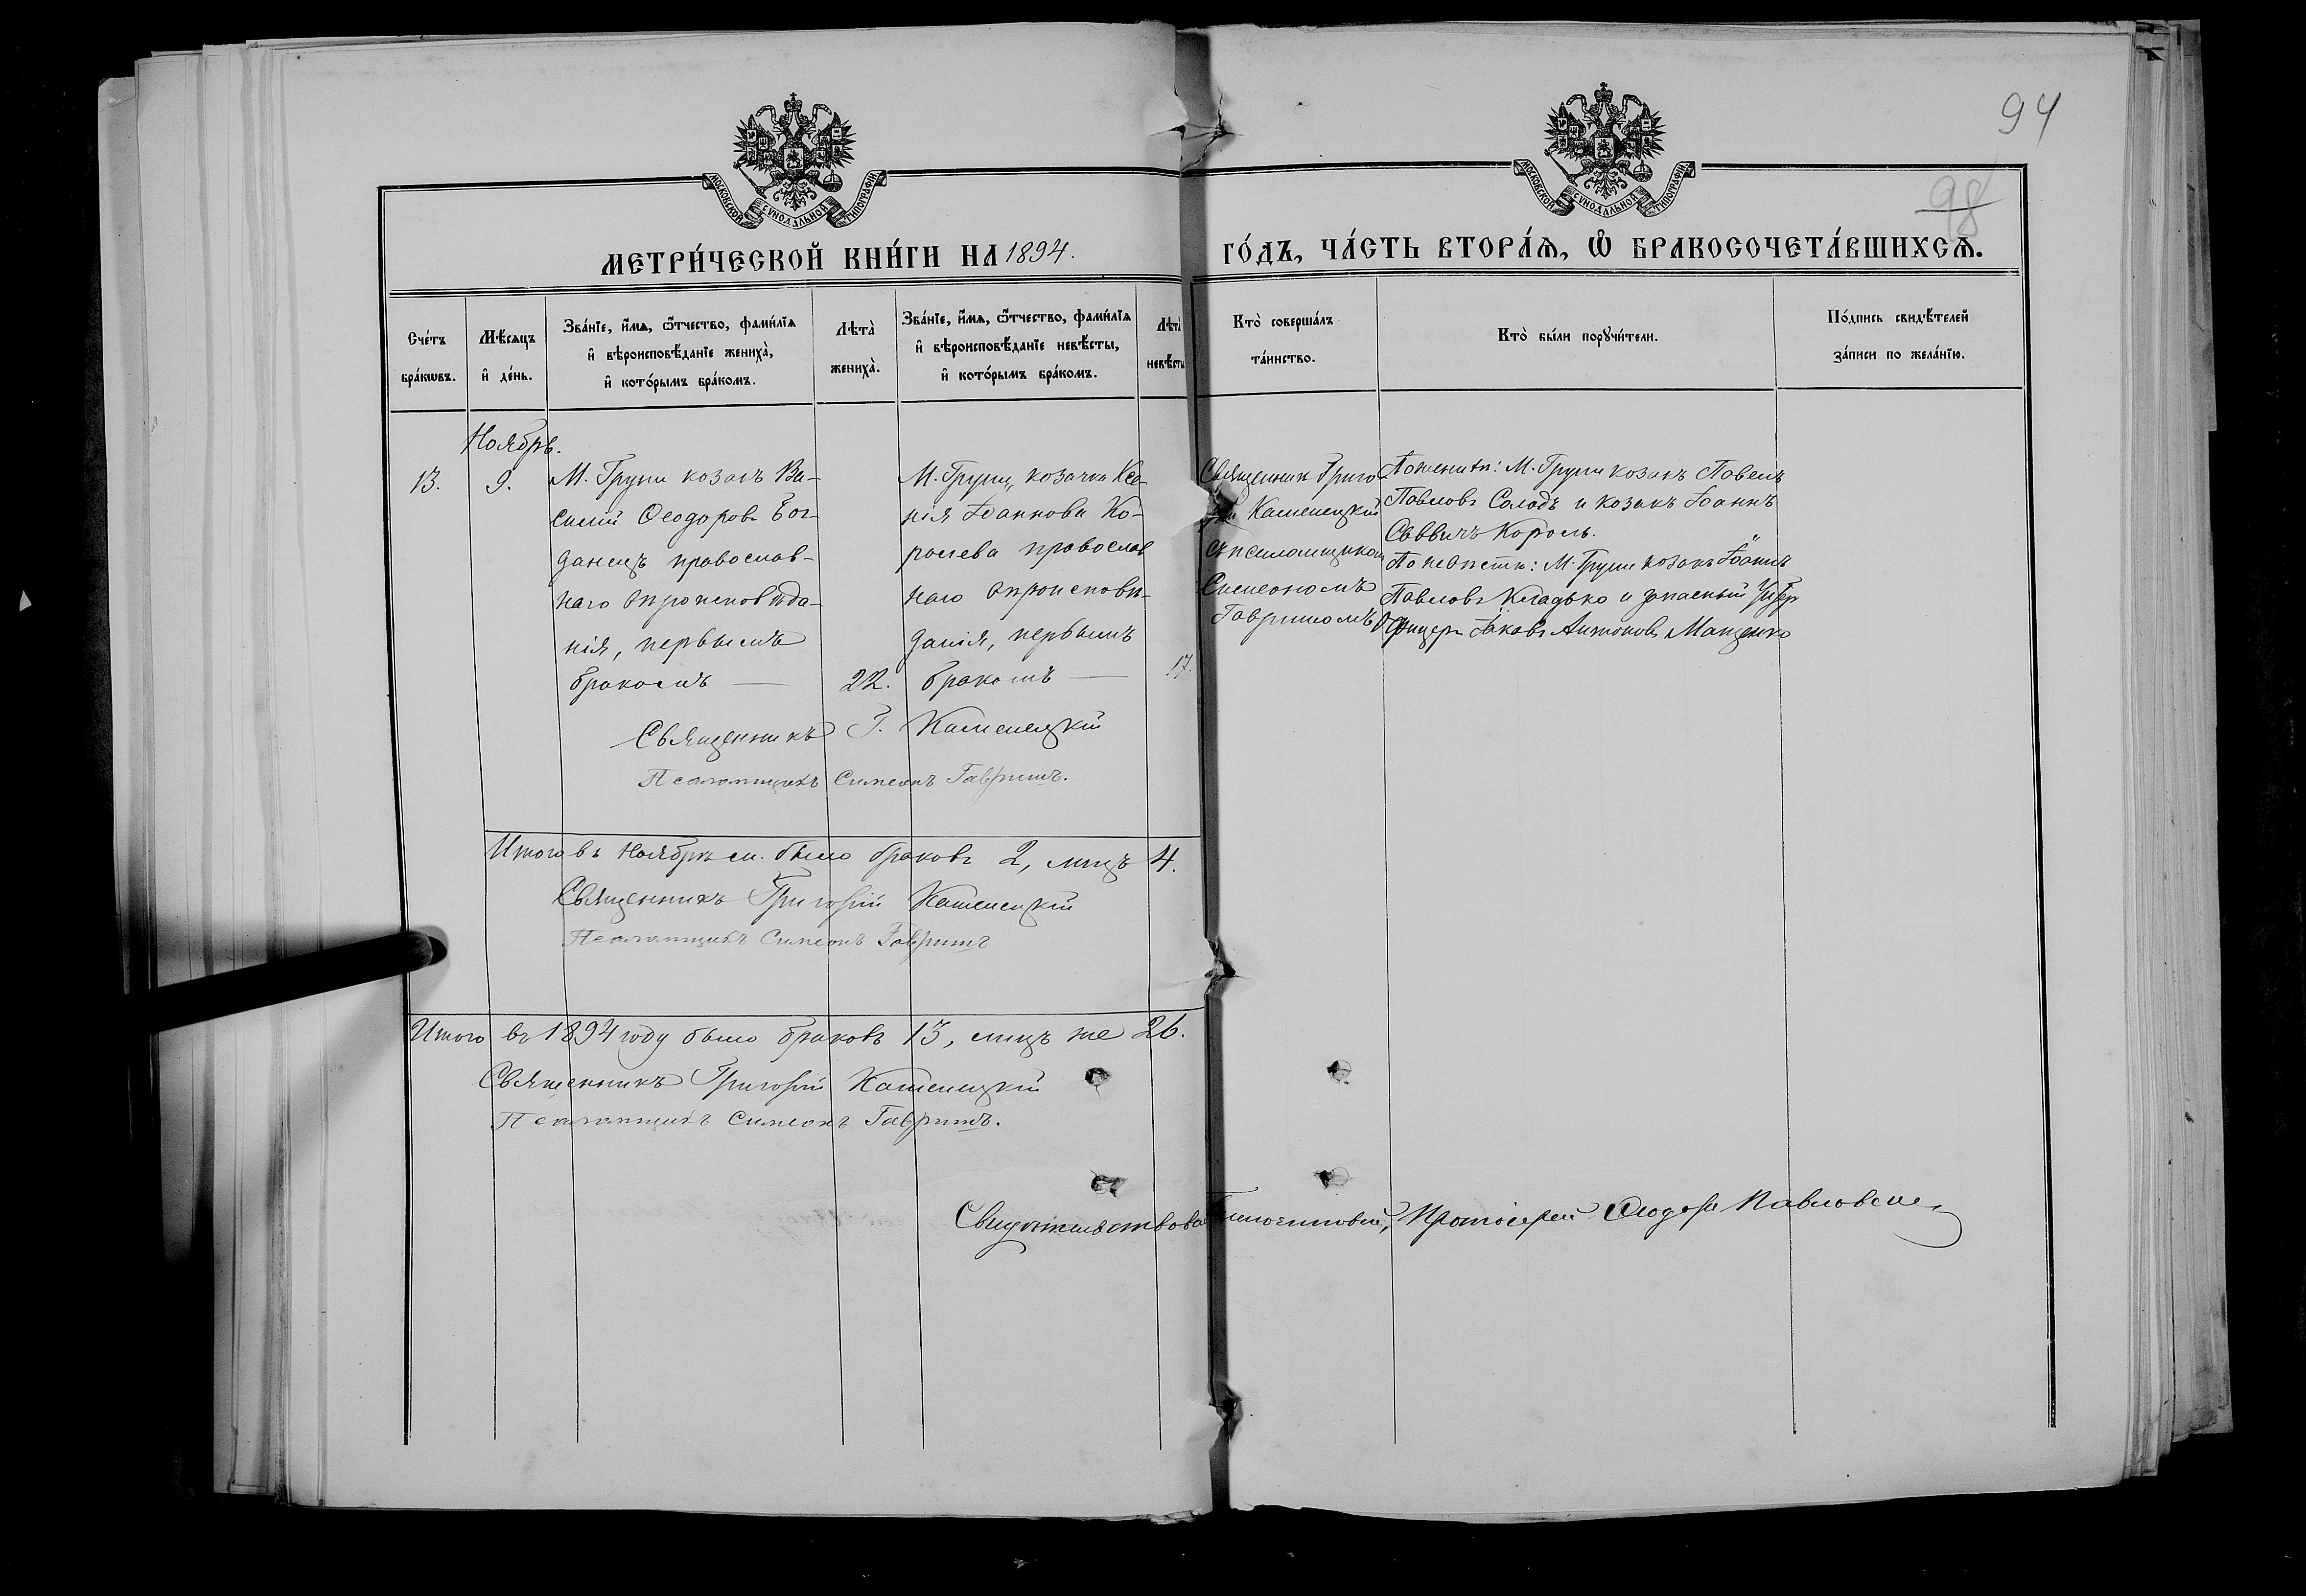 94
98
МОСКОВСКОЙ СѴНОДАЛЬНОЙ ТИПОГРАФІИ
МОСКОВСКОЙ СѴНОДАЛЬНОЙ ТИПОГРАФІИ
МЕТРИ́ЧЕСКОЙ КНИ́ГИ НА 1894. ГО́ДЪ, ЧА́СТЬ ВТОРА́Ѧ, Ѡ҆ БРАКОСОЧЕТА́ВШИХСѦ.
Сче́тъ
бра́кѡвъ.
Мѣ́сяцъ
и҆ де́нь.
Зва́нїе, и҆́мѧ, ѻ҆́тчество, фами́лїѧ
и҆ вѣроисповѣ́данїе жениха̀,
и҆ кото́рымъ бра́комъ.
Лѣта̀
жениха̀.
Зва́нїе, и҆́мѧ, ѻ҆́тчество, фами́лїѧ
и҆ вѣроисповѣ́данїе невѣ́сты,
и҆ кото́рымъ бра́комъ.
Лѣта̀
невѣ́сты
Кто̀ соверша́лъ
та́инство.
Кто̀ бы́ли порꙋчи́тели.
По́дпись свидѣ́телей
за́писи по жела́нїю.
Ноябрь.
13.
9.
М. Груни козакъ Ва-
силій Ѳеодоровъ Бог-
данецъ православ-
наго вѣроисповѣда-
нія, первымъ
бракомъ —
22.
М. Груни, козачка Ксе-
нія Іоаннова Ко-
ролева православ
наго вѣроисповѣ-
данія, первымъ
бракомъ —
17.
Священник Григо-
рій Каменецкій
съ псаломщикомъ
Симеономъ
Гавришомъ
По женихѣ: М. Груни козакъ Павелъ
Павловъ Солодъ и козакъ Іоаннъ
Саввичъ Король.
По невѣстѣ: М. Груни козакъ Іоаннъ
Павловъ Кладько и запасный Унтеръ
Офицеръ Іаковъ Антоновъ Мащенко
Священникъ Г. Каменецкій
Псаломщикъ Симеонъ Гавришъ.
Итого въ Ноябрѣ м. было браковъ 2, лицъ 4.
Священникъ Григорій Каменецкій
Псаломщикъ Симеонъ Гавришъ
Итого въ 1894 году было браковъ 13, лицъ же 26.
Священникъ Григорій Каменецкій
Псаломщикъ Симеонъ Гавришъ.
Свидѣтельствовалъ Протоіерей Ѳеодоръ Павловскі